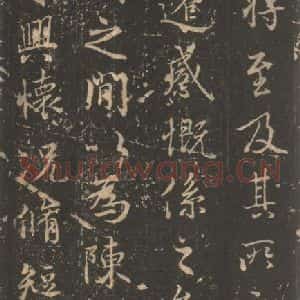 將至及其所
遷感慨係之矣
之間以為陳
興懷況脩短
Shufawang.CN